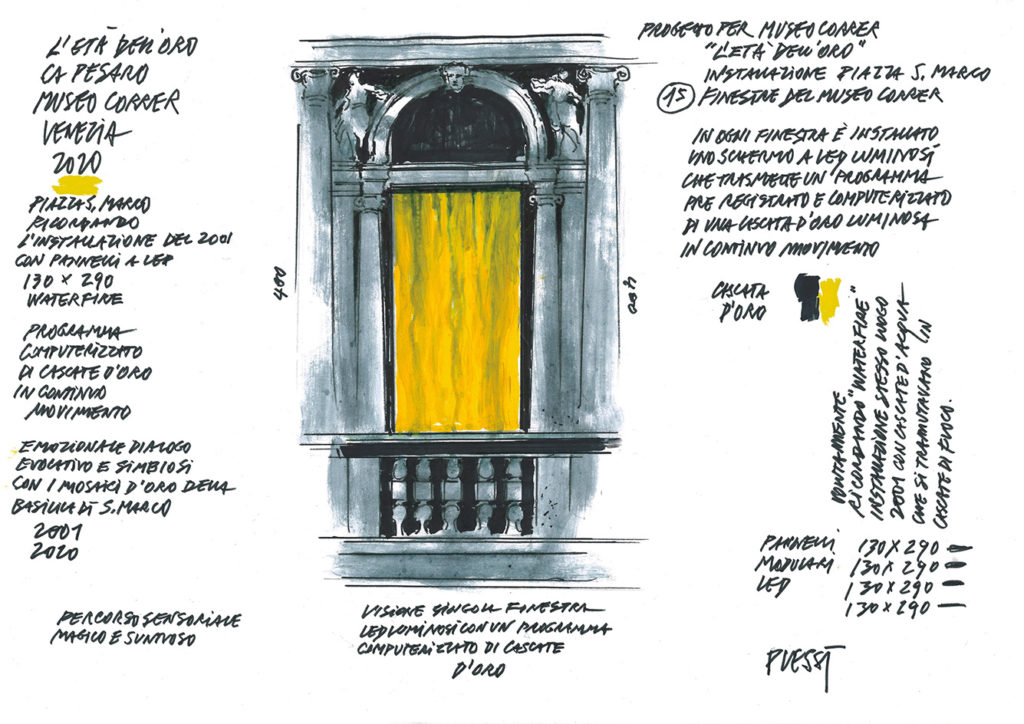 L'ETÀ DELL'ORO
CA PESARO
MUSEO CORRER
VENEZIA
2020
PIAZZA S. MARCO
RICORDANDO
L'INSTALLAZIONE DEL 2001
CON PANNELLI A LED
130 × 290
WATERFIRE
PROGRAMMA
COMPUTERIZZATO
DI CASCATE D'ORO
IN CONTINUO
MOVIMENTO
EMOZIONALE DIALOGO
EVOCATIVO E SIMBIOSI
CON I MOSAICI D'ORO DELLA
BASILICA DI S. MARCO
2001
2020
PERCORSO SENSORIALE
MAGICO E SUNTUOSO
400
400
VISIONE SINGOLA FINESTRA
LED LUMINOSI CON UN PROGRAMMA
COMPUTERIZZATO DI CASCATE
D'ORO
PROGETTO PER MUSEO CORRER
"L'ETÀ DELL'ORO"
INSTALLAZIONE PIAZZA S. MARCO
15 FINESTRE DEL MUSEO CORRER
IN OGNI FINESTRA È INSTALLATO
UNO SCHERMO A LED LUMINOSI
CHE TRASMETTE UN PROGRAMMA
PRE REGISTRATO E COMPUTERIZZATO
DI UNA CASCATA D'ORO LUMINOSA
IN CONTINUO MOVIMENTO
CASCATA
D'ORO
RICORDANDO "WATERFIRE"
INSTALLAZIONE STESSO LUOGO
2001 CON CASCATE D'ACQUA
CHE SI TRAMUTAVANO IN
CASCATE DI FUOCO.
PANNELLI 130 × 290
MODULARI 130 × 290
LED 130 × 290
130 × 290
PLESSI